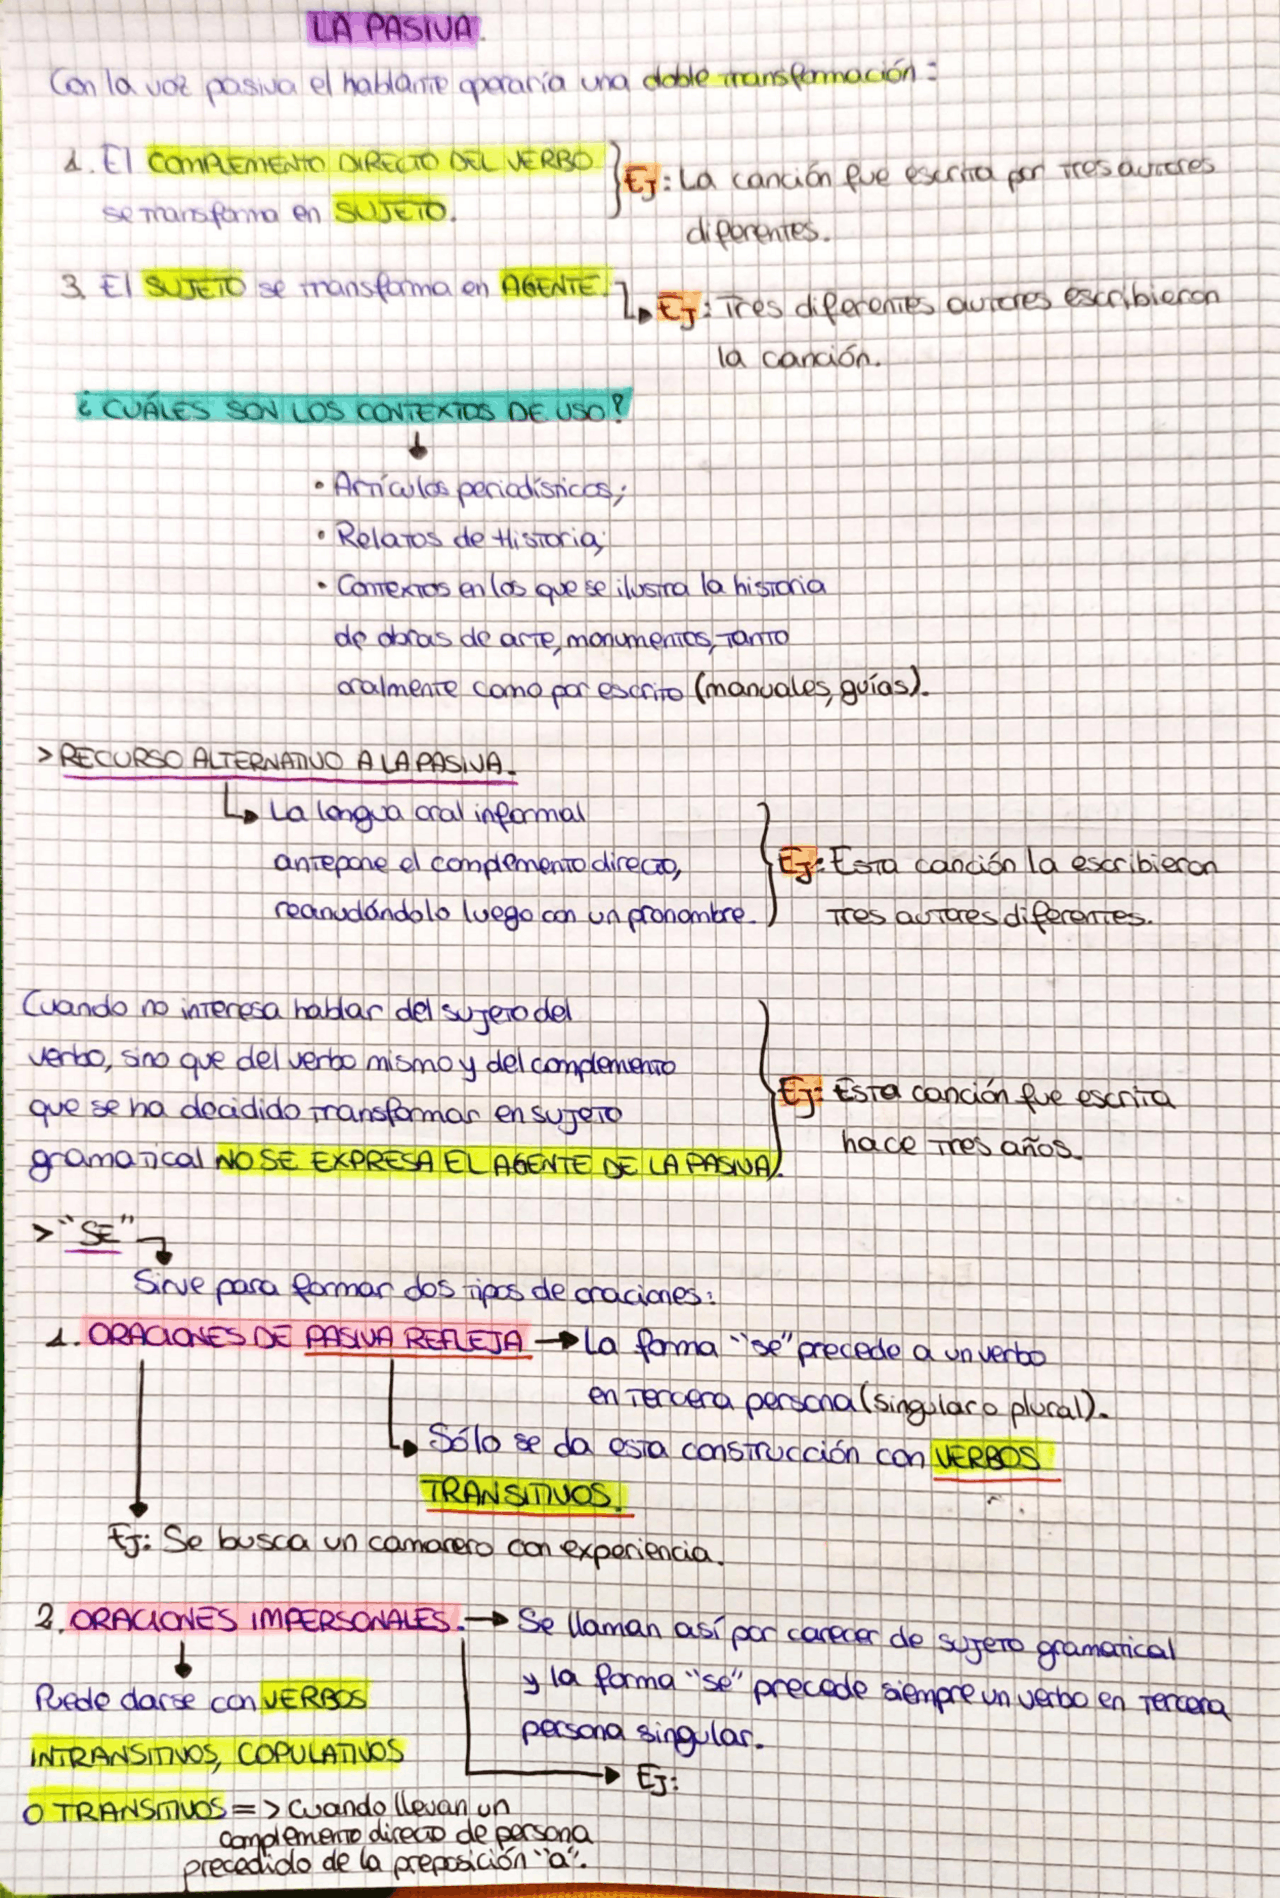 LA PASIVA.
Con la voz pasiva el hablante operaría una doble transformación:
1. El COMPLEMENTO DIRECTO DEL VERBO
se transforma en SUJETO.
EJ: La canción fue escrita por tres autores
diferentes.
3. El SUJETO se transforma en AGENTE.
EJ: Tres diferentes autores escribieron
la canción.
¿CUÁLES SON LOS CONTEXTOS DE USO?
• Artículos periodísticos;
• Relatos de Historia;
• Contextos en los que se ilustra la historia
de obras de arte, monumentos, tanto
oralmente como por escrito (manuales, guías).
> RECURSO ALTERNATIVO A LA PASIVA.
La lengua oral informal
antepone el complemento directo,
reanudándolo luego con un pronombre.
EJ: Esta canción la escribieron
tres autores diferentes.
Cuando no interesa hablar del sujeto del
verbo, sino que del verbo mismo y del complemento
que se ha decidido transformar en sujeto
gramatical NO SE EXPRESA EL AGENTE DE LA PASIVA.
EJ: Esta canción fue escrita
hace tres años.
> "SE"
Sirve para formar dos tipos de oraciones:
1. ORACIONES DE PASIVA REFLEJA → La forma "se" precede a un verbo
en tercera persona (singular o plural).
Sólo se da esta construcción con VERBOS
TRANSITIVOS.
EJ: Se busca un camarero con experiencia.
2. ORACIONES IMPERSONALES. → Se llaman así por carecer de sujeto gramatical
y la forma "se" precede siempre un verbo en tercera
persona singular.
EJ:
Puede darse con VERBOS
INTRANSITIVOS, COPULATIVOS
O TRANSITIVOS => cuando llevan un
complemento directo de persona
precedido de la preposición "a".